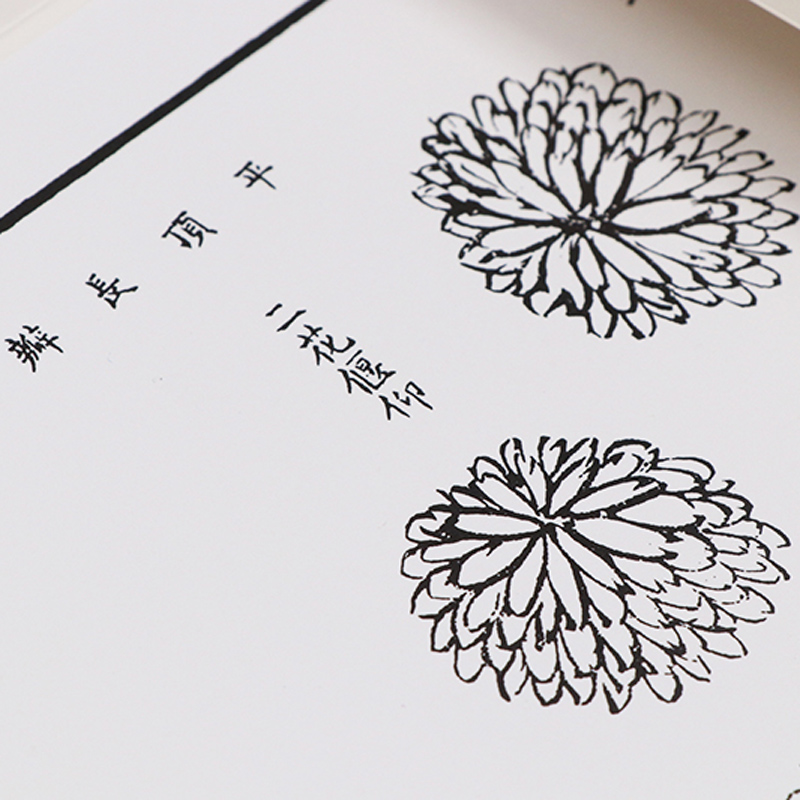 平頂長瓣
二花偃仰